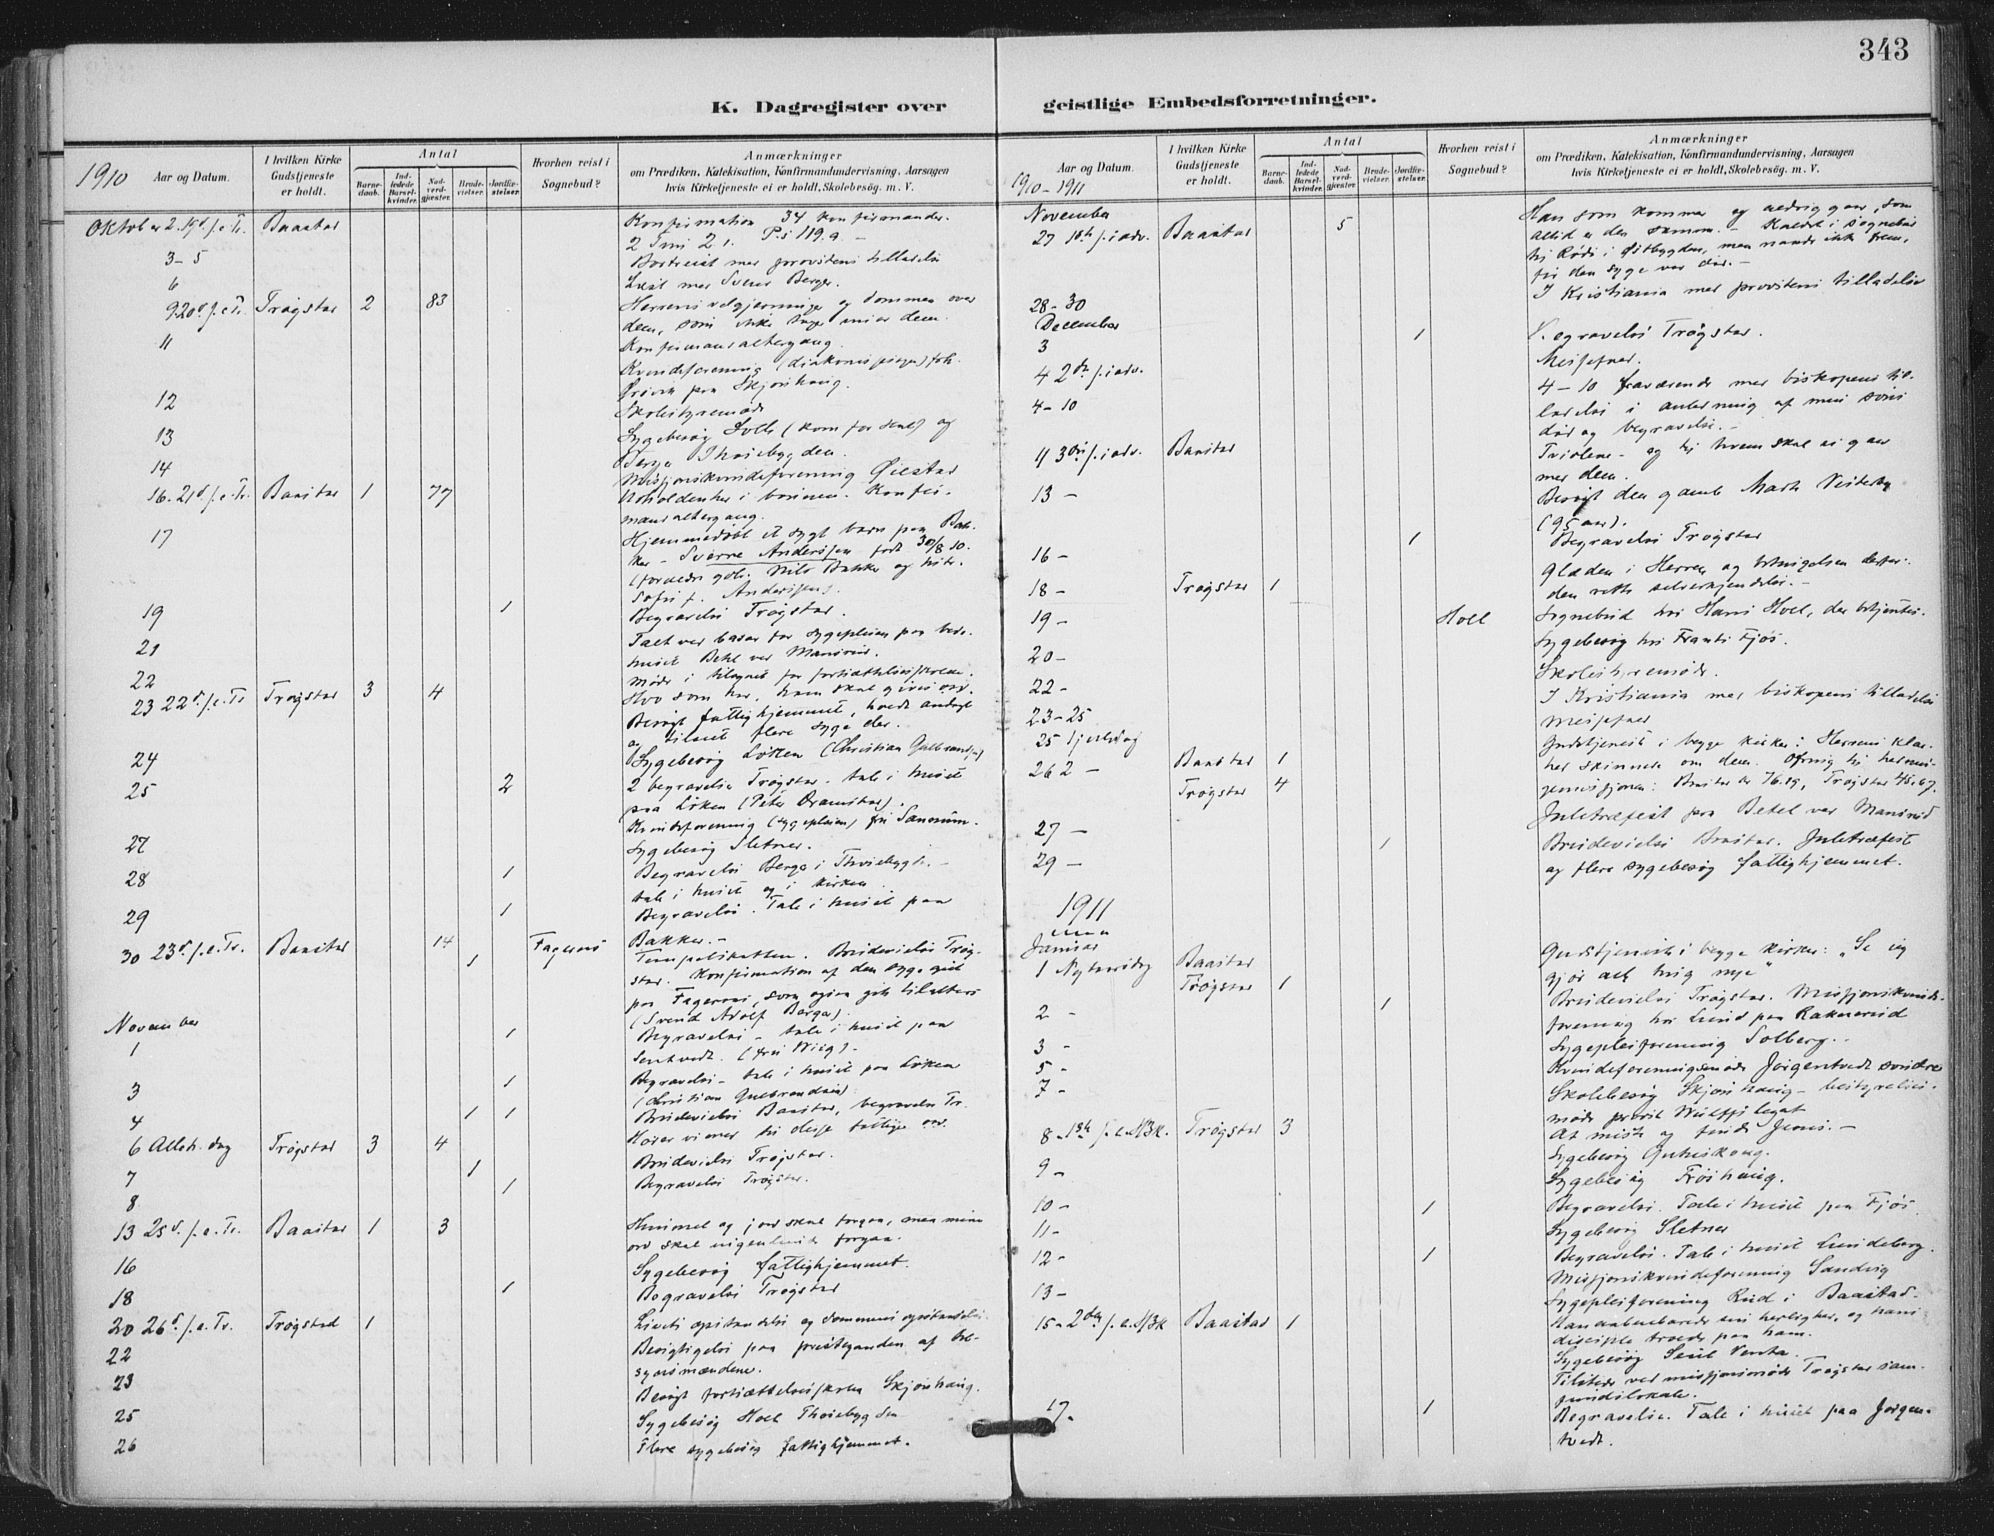 343
K. Dagregister over
geistlige Embedsforretninger.
1910 Aar og Datum.
I hvilken Kirke Gudstjeneste er holdt.
Antal
Barne-daab.
Ind-ledede Barsel-kvinder.
Nad-verd-gjæster.
Brude-vielser.
Jordfæ-stelser.
Hvorhen reist i Sognebud?
Anmærkninger
om Prædiken, Katekisation, Konfirmandundervisning, Aarsagen
hvis Kirketjeneste ei er holdt, Skolebesøg. m. V.
Oktober 2. 19d. s. e. Tr. Baastad Konfirmation 34 konfirmander.
2 Tim 2 1. Ps 119.9 –
3–5 Bortreist med provstens tilladelse
6 Berger.
9 20d s. e. Tr. Trøgstad 2 83 Herrens velgjerninger og dommen over
dem, som ikke
11 Konfirmandaltergang.
Kvindeforening (diakonisse
paa Skjønhaug.
12 Skolestyremøde
13 Sygebesøg (kom for sent) og
14 Berger Thoiebygden.
Missjonskvindeforening
16. 21d s. e. Tr. Baastad 1 77 Konfir-
mandaltergang.
17 Hjemmedøbt et sygt barn paa Bak-
ker – Sverre Anderssen født 30/8 10.
(forældre gdbr. Nils Bakker og hstr.
Sofie f. Anderssen).
19 1 Begravelse Trøgstad.
21 Talt ved basar for sygepleien paa bede-
huset Betel ved
22 Møde i for fortsættelsesskolen.
23 22d s. e. Tr Trøgstad 3 4 Hvo som har, ham skal gives osv.
Besøgt fattighjemmet, holdt andagt
og tilset flere syge der.
24 Sygebesøg Løken (Christian Gulbrandsen)
25 2 2 begravelser Trøgstad. tale i huset
paa Løken (Peter
Kvindeforening (sygepleien) fru
27 Sygebesøg Sletner.
28 1 Begravelse Berger i Thoiebygden. –
tale i huset og i kirken
29 1 Begravelse. Tale i huset paa
Bakker. –
30 23d. s. e. Tr. Baastad 14 1 Fagernes Tempelskatten. Brudevielse Trøg-
stad. Konfirmation af den syge gut
paa Fagernes, som ogsaa gik tilalters
(Svend Adolf
November
1 1 Begravelse – tale i huset paa
3 1 Begravelse – tale i huset paa Løken
(Christian Gulbrandsen)
4 1 1 Brudevielse Baastad, begravelse Tr.
6 Alleh. dag Trøgstad 3 4
7 1 Brudevielse Trøgstad.
8 1 Begravelse Trøgstad.
13 25d. s. e. Tr. Baastad 1 3 Himmel og jord skal forgaa, men mine
ord skal ingenlunde forgaa.
16 Sygebesøg fattighjemmet.
18 1 Begravelse Trøgstad
20 26d s. e. Tr. Trøgstad 1 Livets opstandelse og dommens opstandelse
22 Besigtigelse paa prestegaarden af
synsmændene.
23 Besøgt fortsættelsesskolen Skjønhaug.
25 Sygebesøg Hoel Thoiebygden
26 Flere sygebesøg fattighjemmet.
1910–1911 Aar og Datum.
I hvilken Kirke Gudstjeneste er holdt.
Antal
Barne-daab.
Ind-ledede Barsel-kvinder.
Nad-verd-gjæster.
Brude-vielser.
Jordfæ-stelser.
Hvorhen reist i Sognebud?
Anmærkninger
om Prædiken, Katekisation, Konfirmandundervisning, Aarsagen
hvis Kirketjeneste ei er holdt, Skolebesøg. m. V.
November Han som kommer og aldrig gaar, som
27 1ste s. i adv. Baastad 5 altid er den samme. – Kaldt i sognebud
til i Østbygden, men naaede ikke frem,
før den syge var død. –
28–30 I Kristiania med provstens tilladelse
December
3 1 Begravelse Trøgstad.
4 2den s. i adv. Messefald.
4–10 4–10 fraværende med biskopens til-
ladelse i anledning af min
død og begravelse. –
11 3die s. i adv. Baastad Tvivlene – og til hvem skal vi gaa
med dem.
13 – Besøgt den gamle Marte
(95 aar).
16 – 1 Begravelse Trøgstad
18 – Trøgstad 1 Glæden i Herren og
den rette selverkjendelse. –
19 – Hoel Sognebud hos Hans Hoel, den
20 – Sygebesøg hos Frants Fjøs.
22 – Skolestyremøde.
23–25 I Kristiania med biskopens tilladelse
25 1 juledag Messefald
26 2 – Baastad 1 Gudstjeneste i begge kirker: Herrens klar-
hed skinnede om dem. Ofring til hedninge-
Trøgstad 4 missjonen: Baastad kr 76.89, Trøgstad 45.67.
27 – Juletræfest paa Betel ved
29 – 1 Brudevielse Baastad. Juletræfest
og flere sygebesøg fattighjemmet.
1911
Januar
1 Nytaarsdag Baastad Gudstjeneste i begge kirker: „Se jeg
Trøgstad 1 gjør alt nyt“
2 – 1 Brudevielse Trøgstad. Missjonskvinde-
forening hos Lund paa Raknerud
3 – Sygepleiforening Solberg. –
5 – Kvindeforeningsmøde Jørgentvedt søndre
7 – Skolebesøg Skjønhaug – bestyrelses-
møde provst Wulffs legat
8 – 1ste s. e. H3K. Trøgstad 3 At miste og finde Jesus. –
9 – Sygebesøg
Sygebesøg Frøshaug.
10 – 1 Begravelse. Tale i huset paa Fjøs.
11 – Sygebesøg Sletner
12 – 1 Begravelse. Tale i huset Lundeberg.
Missjonskvindeforening Sandvig
13 – Sygepleiforening Rud i Baastad.
15 – 2den s. e. H3K Baastad 1 Han aabenbarede sin herlighed, og hans
disciple troede paa ham.
Sygebesøg
Tilstede ved missjonsmøde Trøgstad sam-
fundslokale.
17. 1 Begravelse. Tale i huset paa Jørgen-
tvedt.